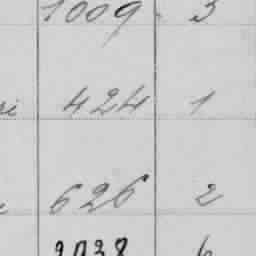 1009 3
424 1
626 2
2038 6